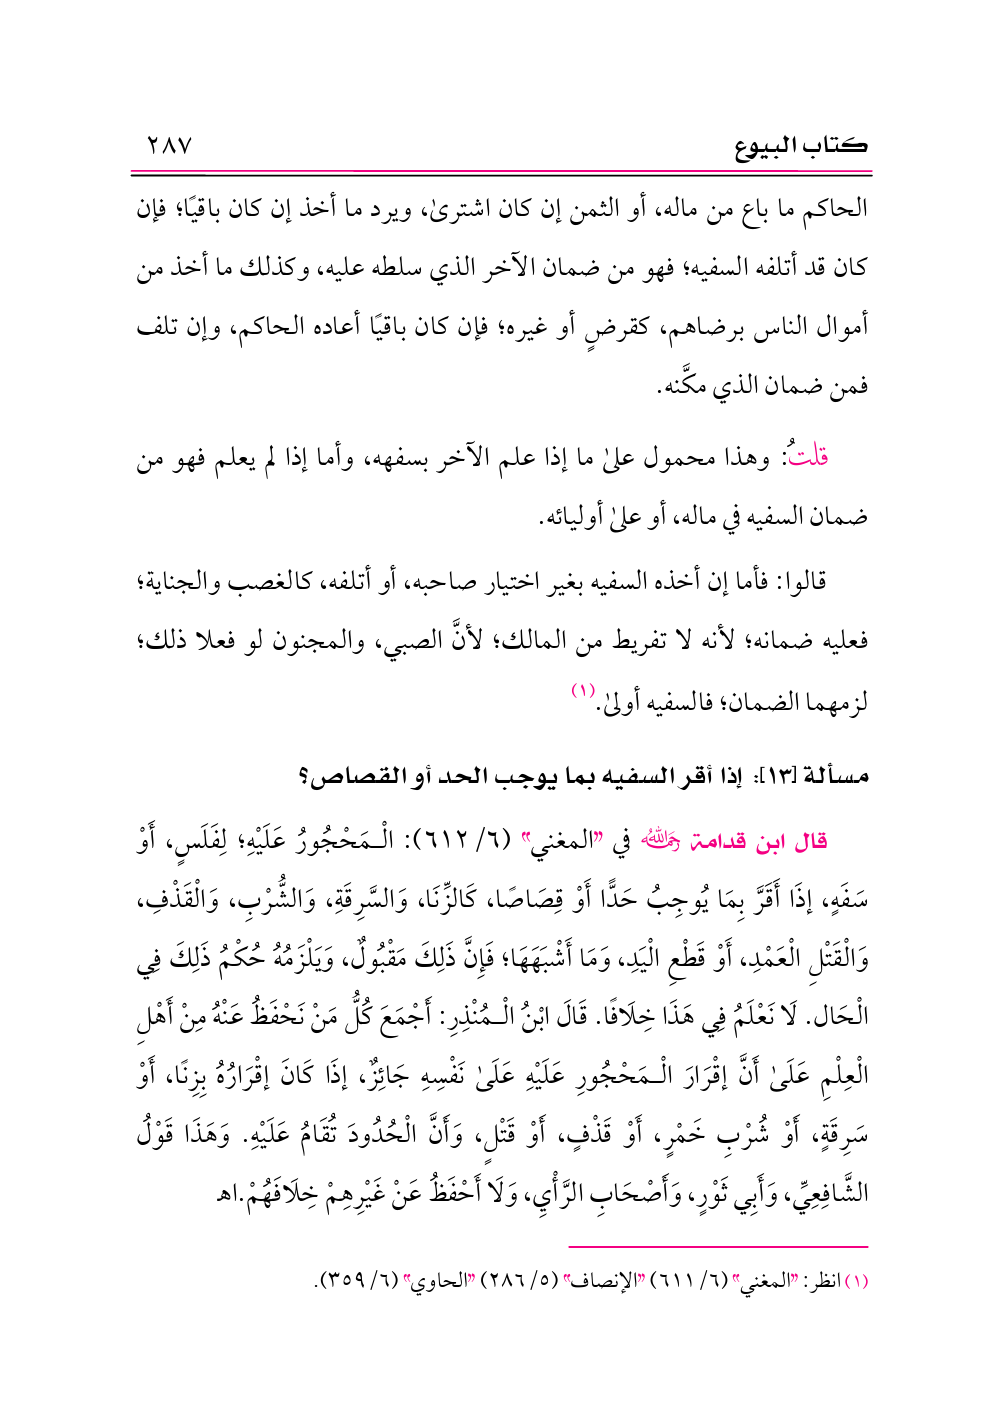 كتاب البيوع ٢٨٧
الحاكم ما باع من ماله، أو الثمن إن كان اشترىٰ، ويرد ما أخذ إن كان باقيًا؛ فإن
كان قد أتلفه السفيه؛ فهو من ضمان الآخر الذي سلطه عليه، وكذلك ما أخذ من
أموال الناس برضاهم، كقرضٍ أو غيره؛ فإن كان باقيًا أعاده الحاكم، وإن تلف
فمن ضمان الذي مكَّنه.
قلتُ: وهذا محمول علىٰ ما إذا علم الآخر بسفهه، وأما إذا لم يعلم فهو من
ضمان السفيه في ماله، أو علىٰ أوليائه.
قالوا: فأما إن أخذه السفيه بغير اختيار صاحبه، أو أتلفه، كالغصب والجناية؛
فعليه ضمانه؛ لأنه لا تفريط من المالك؛ لأنَّ الصبي، والمجنون لو فعلا ذلك؛
لزمهما الضمان؛ فالسفيه أولىٰ.(١)
مسألة [١٣]: إذا أقر السفيه بما يوجب الحد أو القصاص؟
قال ابن قدامة رحمه الله في "المغني" (٦/ ٦١٢): الْـمَحْجُورُ عَلَيْهِ؛ لِفَلَسٍ، أَوْ
سَفَهٍ، إذَا أَقَرَّ بِمَا يُوجِبُ حَدًّا أَوْ قِصَاصًا، كَالزِّنَا، وَالسَّرِقَةِ، وَالشُّرْبِ، وَالْقَذْفِ،
وَالْقَتْلِ الْعَمْدِ، أَوْ قَطْعِ الْيَدِ، وَمَا أَشْبَهَهَا؛ فَإِنَّ ذَلِكَ مَقْبُولٌ، وَيَلْزَمُهُ حُكْمُ ذَلِكَ فِي
الْحَال. لَا نَعْلَمُ فِي هَذَا خِلَافًا. قَالَ ابْنُ الْـمُنْذِرِ: أَجْمَعَ كُلُّ مَنْ نَحْفَظُ عَنْهُ مِنْ أَهْلِ
الْعِلْمِ عَلَىٰ أَنَّ إقْرَارَ الْـمَحْجُورِ عَلَيْهِ عَلَىٰ نَفْسِهِ جَائِزٌ، إذَا كَانَ إقْرَارُهُ بِزِنًا، أَوْ
سَرِقَةٍ، أَوْ شُرْبِ خَمْرٍ، أَوْ قَذْفٍ، أَوْ قَتْلٍ، وَأَنَّ الْحُدُودَ تُقَامُ عَلَيْهِ. وَهَذَا قَوْلُ
الشَّافِعِيِّ، وَأَبِي ثَوْرٍ، وَأَصْحَابِ الرَّأْيِ، وَلَا أَحْفَظُ عَنْ غَيْرِهِمْ خِلَافَهُمْ.اهـ
(١) انظر: "المغني" (٦/ ٦١١) "الإنصاف" (٥/ ٢٨٦) "الحاوي" (٦/ ٣٥٩).